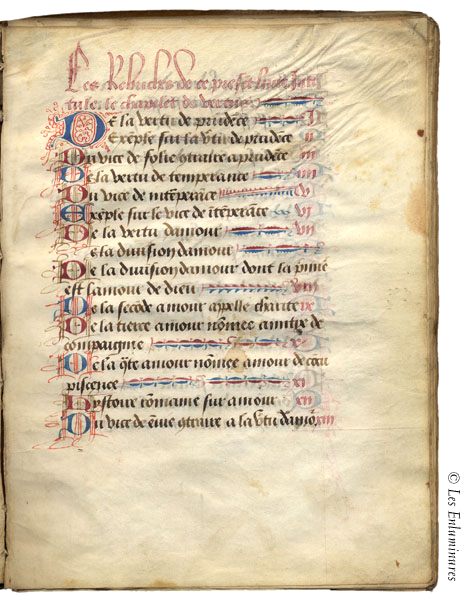 Les Rebriches de ce present livre Intti
tule le chapelet de vertus
De la vertu de prudēce II
Exēple sur la vtu de prudēce II
Du vice de folie 9traire a prudēce III
De la vertu de temperance IIII
Du vice de intēperāce VI
Exēple sur le vice de itēperāce VI
De la vertu damour VII
De la division damour
De la division damour dont la pmiē
est lamour de dieu VIII
De la secōde amour apelle charite IX
De la tierce amour nōmee amitye de
compaignie X
De la qrte amour nōmee amour de cōcu
piscence XI
Hystoire rommaine sur amour XII
Du vice de ēnvie 9traire a la vtu damor XIII
© Les Enluminures